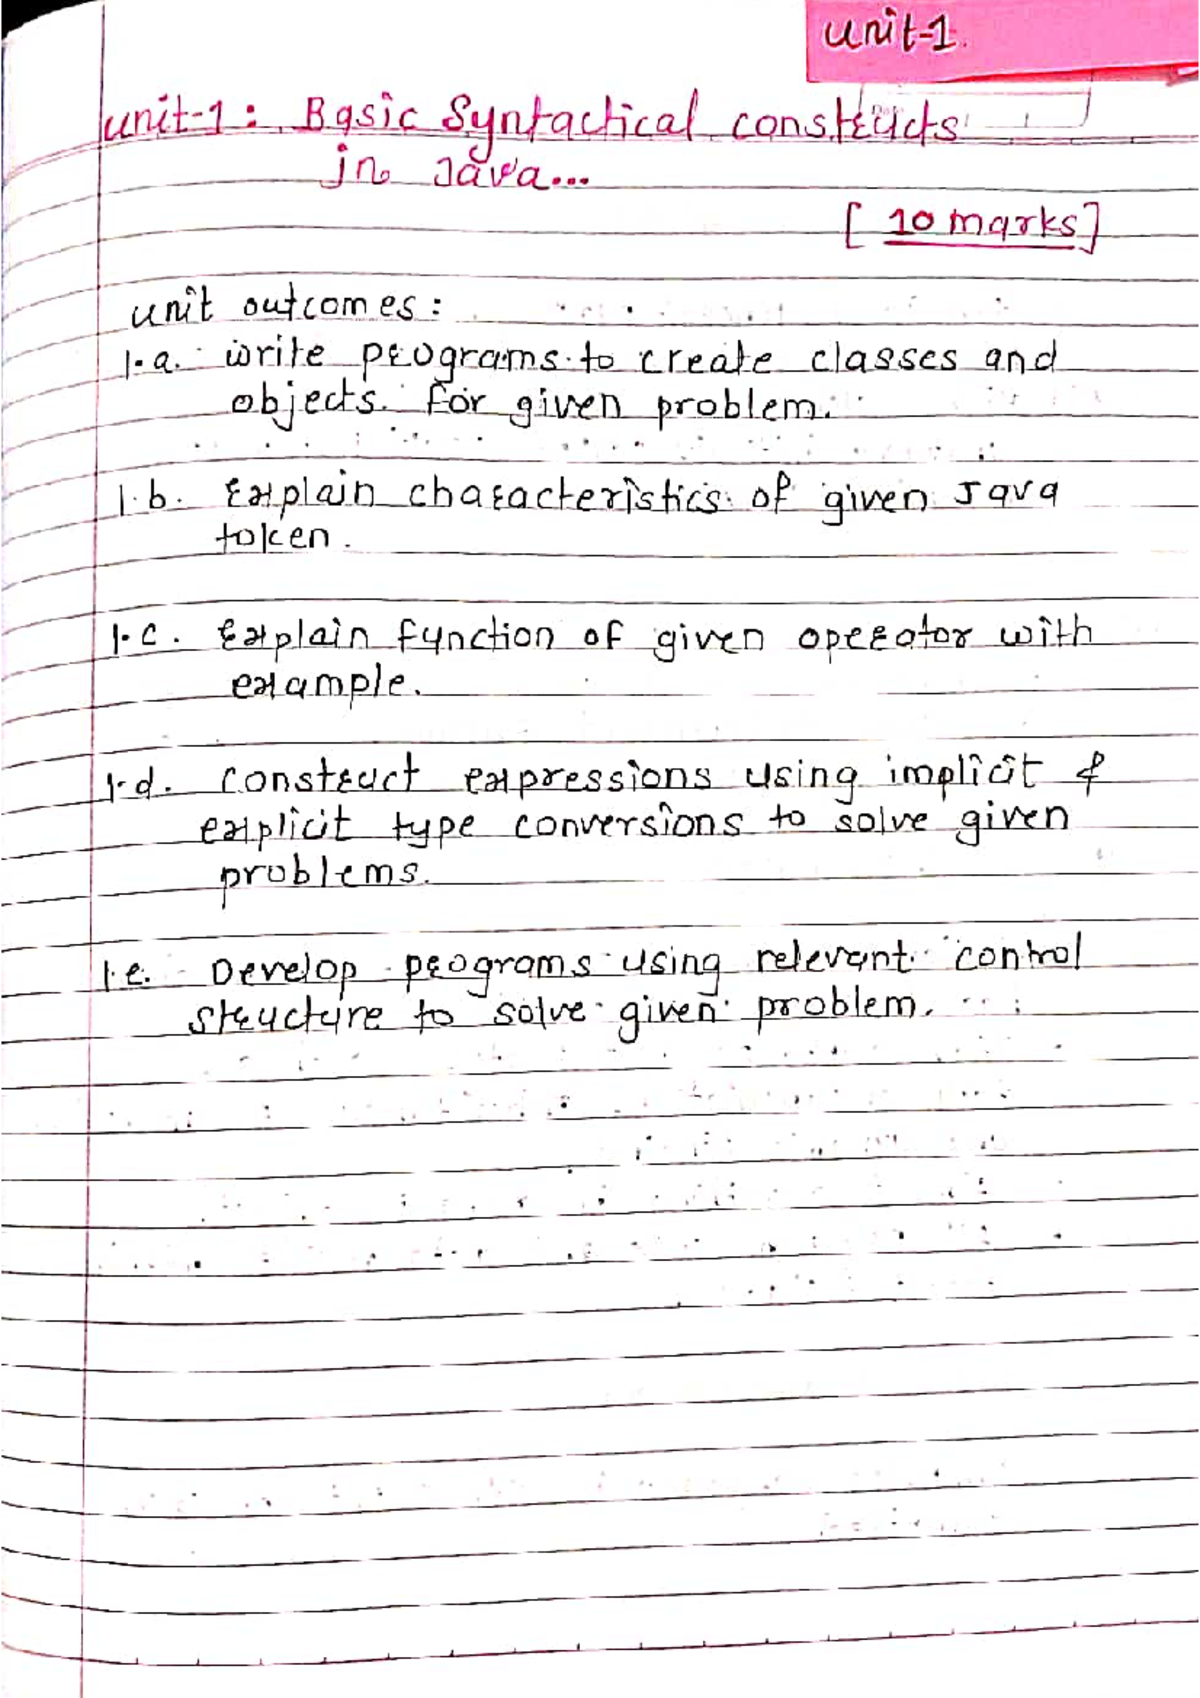 unit-1.
unit-1: Basic Syntactical constructs
in Java...
[10 marks]
unit outcomes:
1.a. write programs to create classes and
objects. for given problem.
1.b. Explain characteristics of given Java
token.
1.c. Explain function of given operator with
example.
1.d. construct expressions using implicit &
explicit type conversions to solve given
problems.
1.e. Develop programs using relevant control
structure to solve given problem.